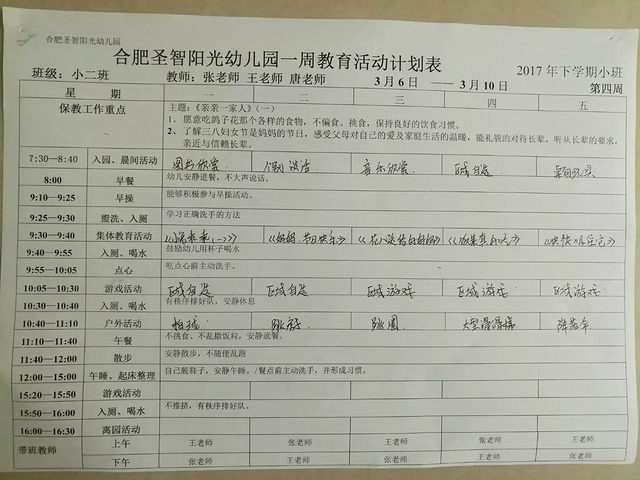 合肥圣智阳光幼儿园
合肥圣智阳光幼儿园一周教育活动计划表
班级：小二班 教师：张老师 王老师 唐老师 3月6日 —— 3月10日 2017年下学期小班
第四周
星 期 一 二 三 四 五
保教工作重点
主题：《亲亲一家人》（一）
1、愿意吃鸽子花那个各样的食物，不偏食、挑食，保持良好的饮食习惯。
2、了解三八妇女节是妈妈的节日，感受父母对自己的爱及家庭生活的温暖，能礼貌的对待长辈，听从长辈的要求，
亲近与信赖长辈。
7:30—8:40 入园、晨间活动 图书欣赏 个别谈话 音乐欣赏 区域自选
8:00 早餐 幼儿安静进餐，不大声说话。
9:10—9:25 早操 能够积极参与早操活动。
9:25—9:30 盥洗、入厕 学习正确洗手的方法
9:30—9:40 集体教育活动 《妈妈，节日快乐》
9:40—9:55 入厕、喝水 鼓励幼儿用杯子喝水
9:55—10:05 点心 吃点心前主动洗手。
10:05—10:30 游戏活动 区域自选 区域自选 区域游戏 区域游戏 区域游戏
10:30—10:40 入厕、喝水 有秩序排好队，安静休息
10:40—11:10 户外活动 拍球 跳圈 大型滑滑梯
11:10—11:40 午餐 不挑食、不乱撒饭粒，安静就餐。
11:40—12:00 散步 安静散步，不随便乱跑
12:00—15:00 午睡、起床整理 自己脱鞋子，安静午睡。/餐点前主动洗手，并形成习惯。
15:20—15:50 游戏活动
15:50—16:00 入厕、喝水 不推挤，有秩序排好队。
16:00—16:30 离园活动
带班教师 上午 王老师 张老师 王老师 张老师 王老师
下午 张老师 王老师 张老师 王老师 张老师